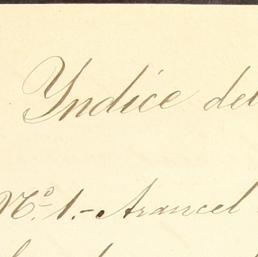 Yndice del
Nº. 1.- Arancel